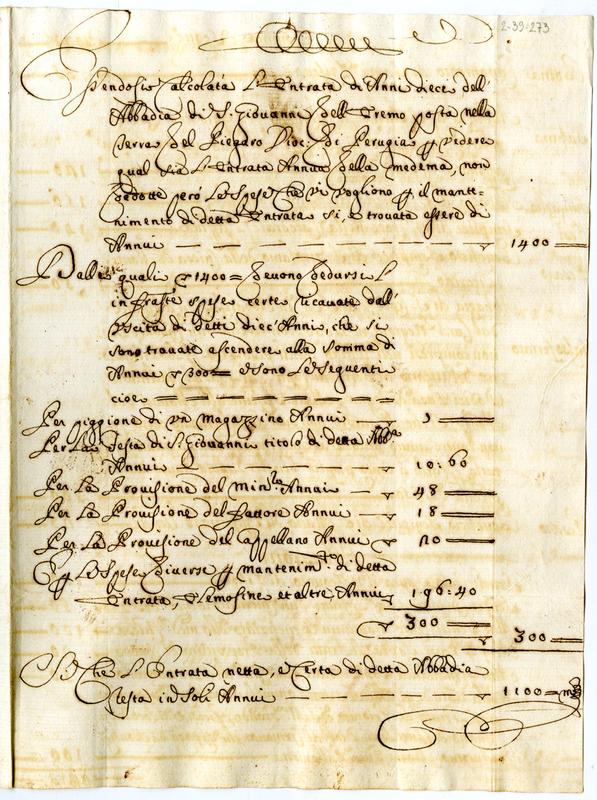 2-39-273
Essendosi Calcolata L'Entrata di Anni dieci dell'
Abbadia di S. Giovanni dell'Eremo posta nella
Terra del Piegaro Dioc. di Perugia p vedere
qual sia L'Entrata Annua della medema, non
dedotte però Le Spese che vi vogliono p il mante-
nimento di detta Entrata si, è trovata essere di
Annui — 1400
Dalli quali 1400 = devono dedursi L'
infraste spese certe ricavate dall'
Uscita di detti dieci Anni, che si
sono trovate ascendere alla somma di
Annui 300 = e sono Le seguenti
cioè
Per piggione di un Magazzino Annui —
Per La festa di S. Giovanni titolo di detta Abba
Annui — 10:60
Per La Provisione del Minro Annui — 48
Per La Provisione del fattore Annui — 18
Per La Provisione del Cappellano Annui
E p Le Spese diverse p mantenimto di detta
Entrata, Elemosine et altre, Annui 196:40
300 — 300
Si Che L'Entrata netta, e Certa di detta Abbadia
resta in Soli Annui — 1100 = mta